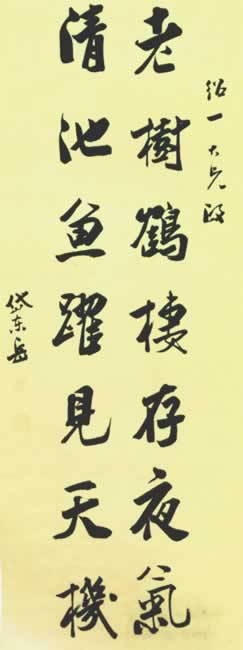 紹一大兄政
老樹鶴棲存夜氣
清池魚躍見天機
岱东岳